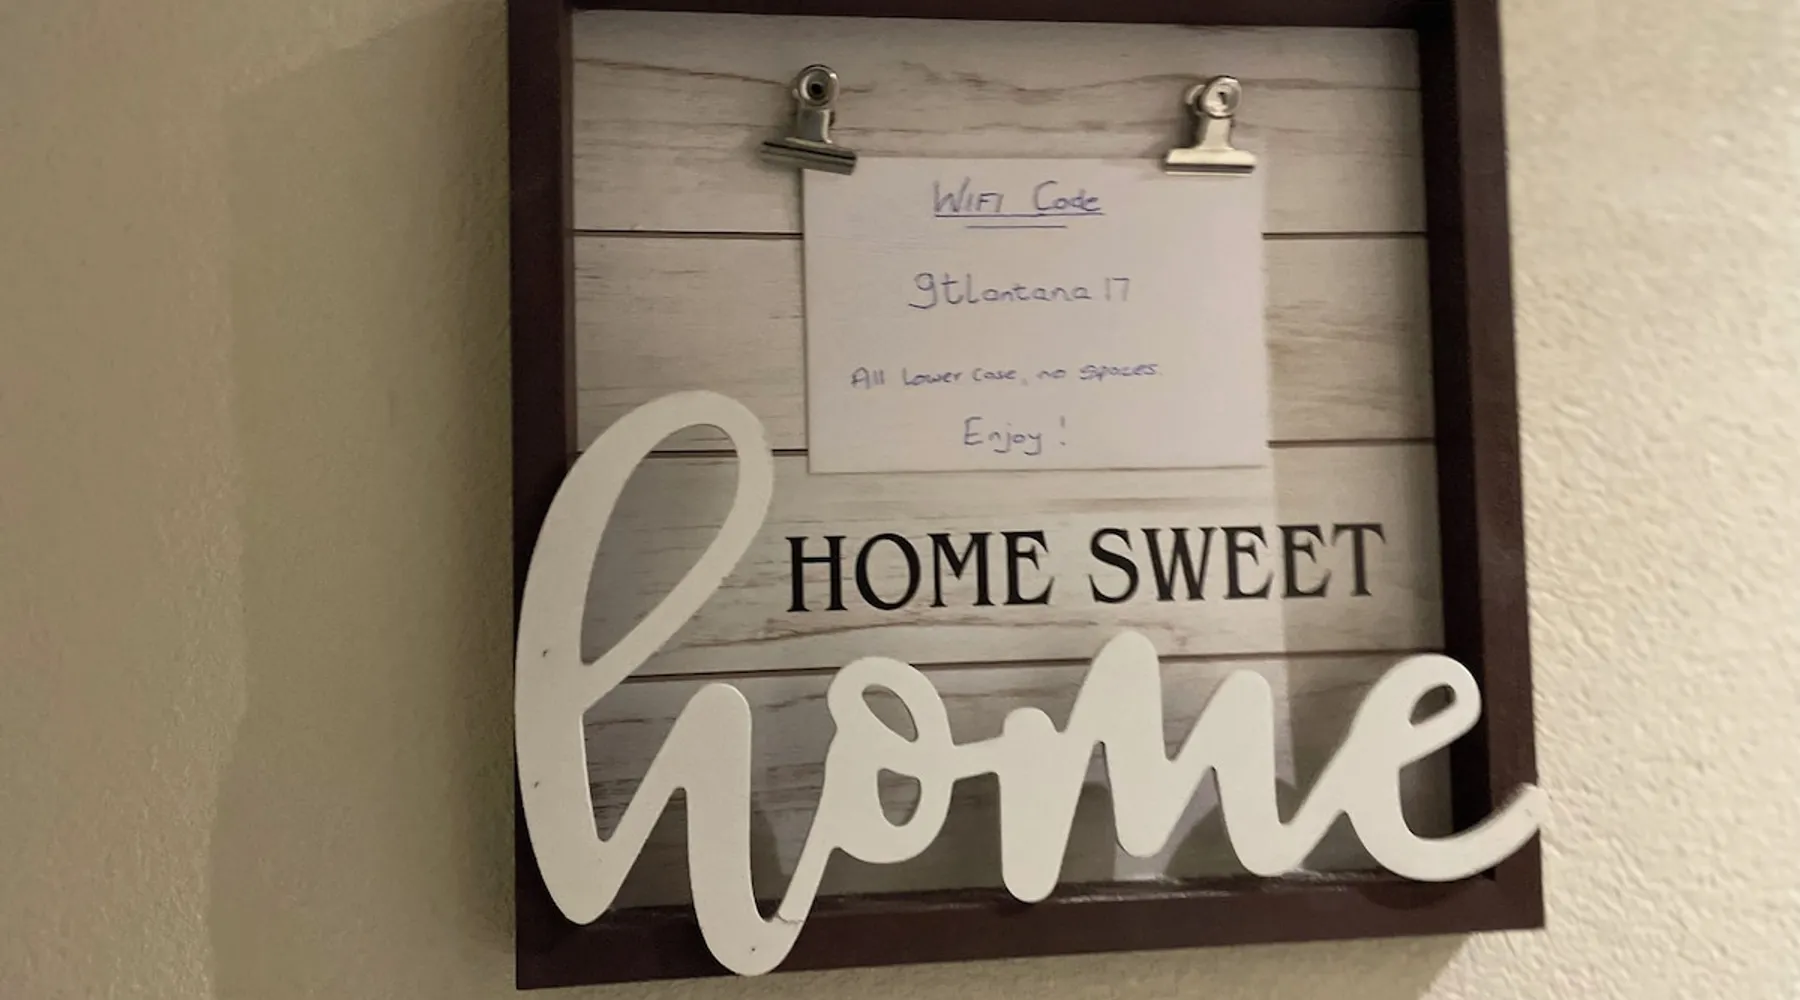 WIFI Code
gtlantana17
All lower case, no spaces.
Enjoy!
HOME SWEET
home